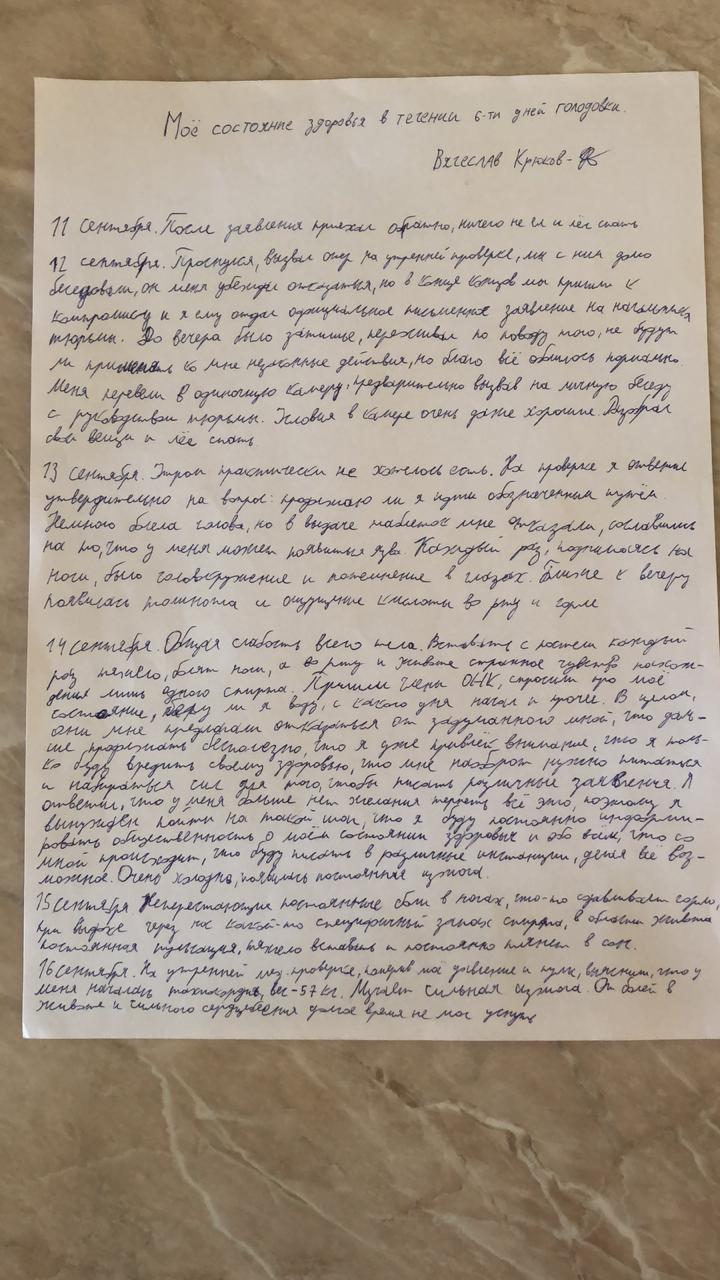 Моё состояние здоровья в течении 6-ти дней голодовки.
Вячеслав Крюков-
11 сентября. После заявления приехал обратно, ничего не ел и лёг спать
12 сентября. Проснулся, вызвал опер на утренней проверке, мы с ним долго
беседовали, он меня убеждал отказаться, но в конце концов мы пришли к
компромиссу и я ему отдал официальное письменное заявление на начальника
тюрьмы. До вечера было затишье, переживал по поводу того, не будут
ли применять ко мне незаконные действия, но благо всё обошлось нормально.
Меня перевели в одиночную камеру, предварительно вызвав на личную беседу
с руководством тюрьмы. Условия в камере очень даже хорошие. Разобрал
свои вещи и лёг спать
13 сентября. Утром практически не хотелось есть. На проверке я ответил
утвердительно на вопрос: продолжаю ли я идти обозначенным путём.
Немного болела голова, но в выдаче таблеток мне отказали, сославшись
на то, что у меня может появиться язва. Каждый раз, поднимаясь на
ноги, было головокружение и потемнение в глазах. Ближе к вечеру
появилась тошнота и ощущение кислоты во рту и горле
14 сентября. Общая слабость всего тела. Вставать с постели каждый
раз тяжело, болят ноги, а во рту и животе странное чувство нахож-
дения лишь одного спирта. Пришли члены ОНК, спросили про моё
состояние, беру ли я воду, с какого дня начал и прочее. В целом,
они мне предлагали отказаться от задуманного мной, что даль-
ше продолжать бесполезно, что я уже привлёк внимание, что я толь-
ко буду вредить своему здоровью, что мне наоборот нужно питаться
и набираться сил для того, чтобы писать различные заявления. Я
ответил, что у меня больше нет желания терпеть всё это, поэтому я
вынужден пойти на такой шаг, что я буду постоянно информи-
ровать общественность о моём состоянии здоровья и обо всём, что со
мной происходит, что буду писать в различные инстанции, делая всё воз-
можное. Очень холодно, появилась постоянная изжога.
15 сентября Непрестающие постоянные боли в ногах, что-то сдавливает горло,
при выдохе через нос какой-то специфичный запах спирта, в области живота
постоянная пульсация, тяжело вставать и постоянно клонит в сон.
16 сентября. На утренней мед. проверке, померив моё давление и пульс, выяснили, что у
меня началась тахикардия, вес-57 кг. Мучает сильная изжога. От болей в
животе и сильного сердцебиения долгое время не мог уснуть